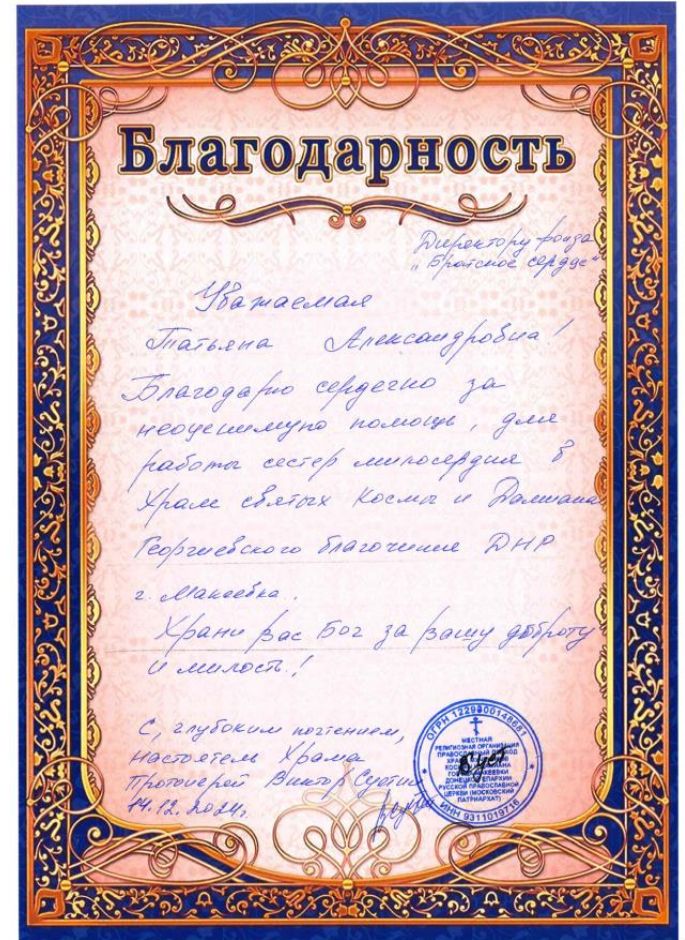 Благодарность
Директору фонда
"Братское сердце"
Уважаемая
Татьяна Александровна!
Благодарю сердечно за
неоценимую помощь, для
работы сестер милосердия в
Храме святых Космы и Дамиана
Георгиевского благочиния ДНР
г. Макеевка.
Храни вас Бог за вашу доброту
и милость!
С, глубоким почтением,
настоятель Храма
Протоиерей Виктор
14.12.2024г.
ОГРН 1229300148681
МЕСТНАЯ
РЕЛИГИОЗНАЯ ОРГАНИЗАЦИЯ
ПРАВОСЛАВНЫЙ ПРИХОД
ДОНЕЦКОЙ ЕПАРХИИ
РУССКОЙ ПРАВОСЛАВНОЙ
ЦЕРКВИ (МОСКОВСКИЙ
ПАТРИАРХАТ)
ИНН 9311019716